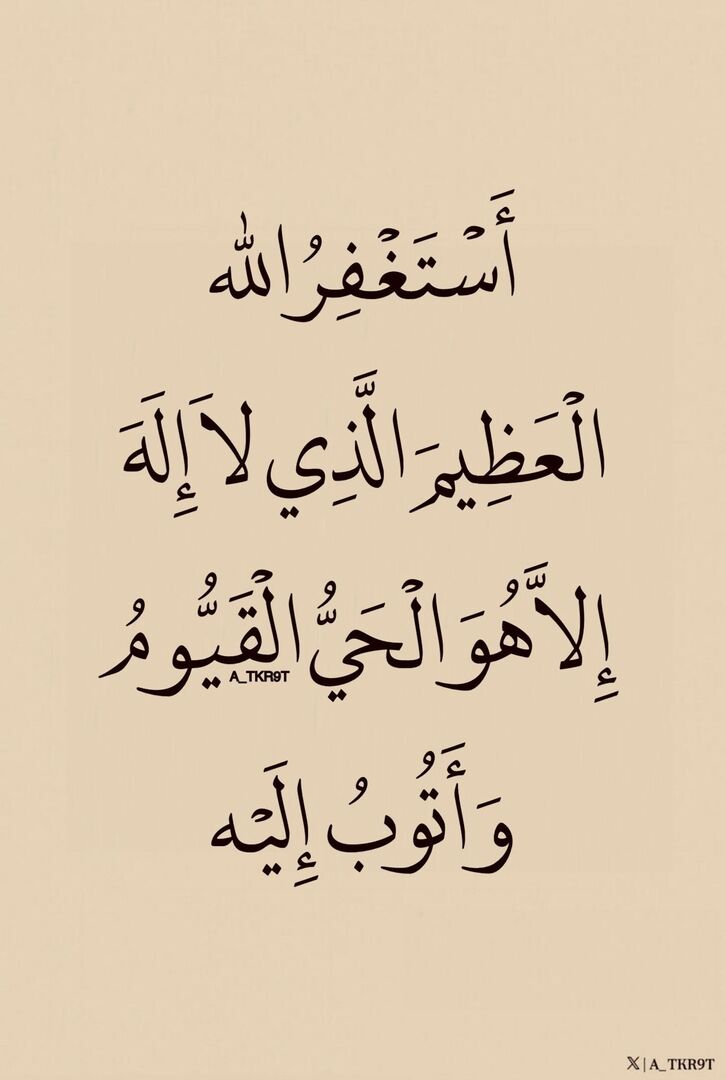 أَسْتَغْفِرُ الله
الْعَظِيمَ الَّذِي لاَ إِلَهَ
إِلاَّ هُوَ الْحَيُّ الْقَيُّومُ
A_TKR9T
وَأَتُوبُ إِلَيْه
𝕏 | A_TKR9T